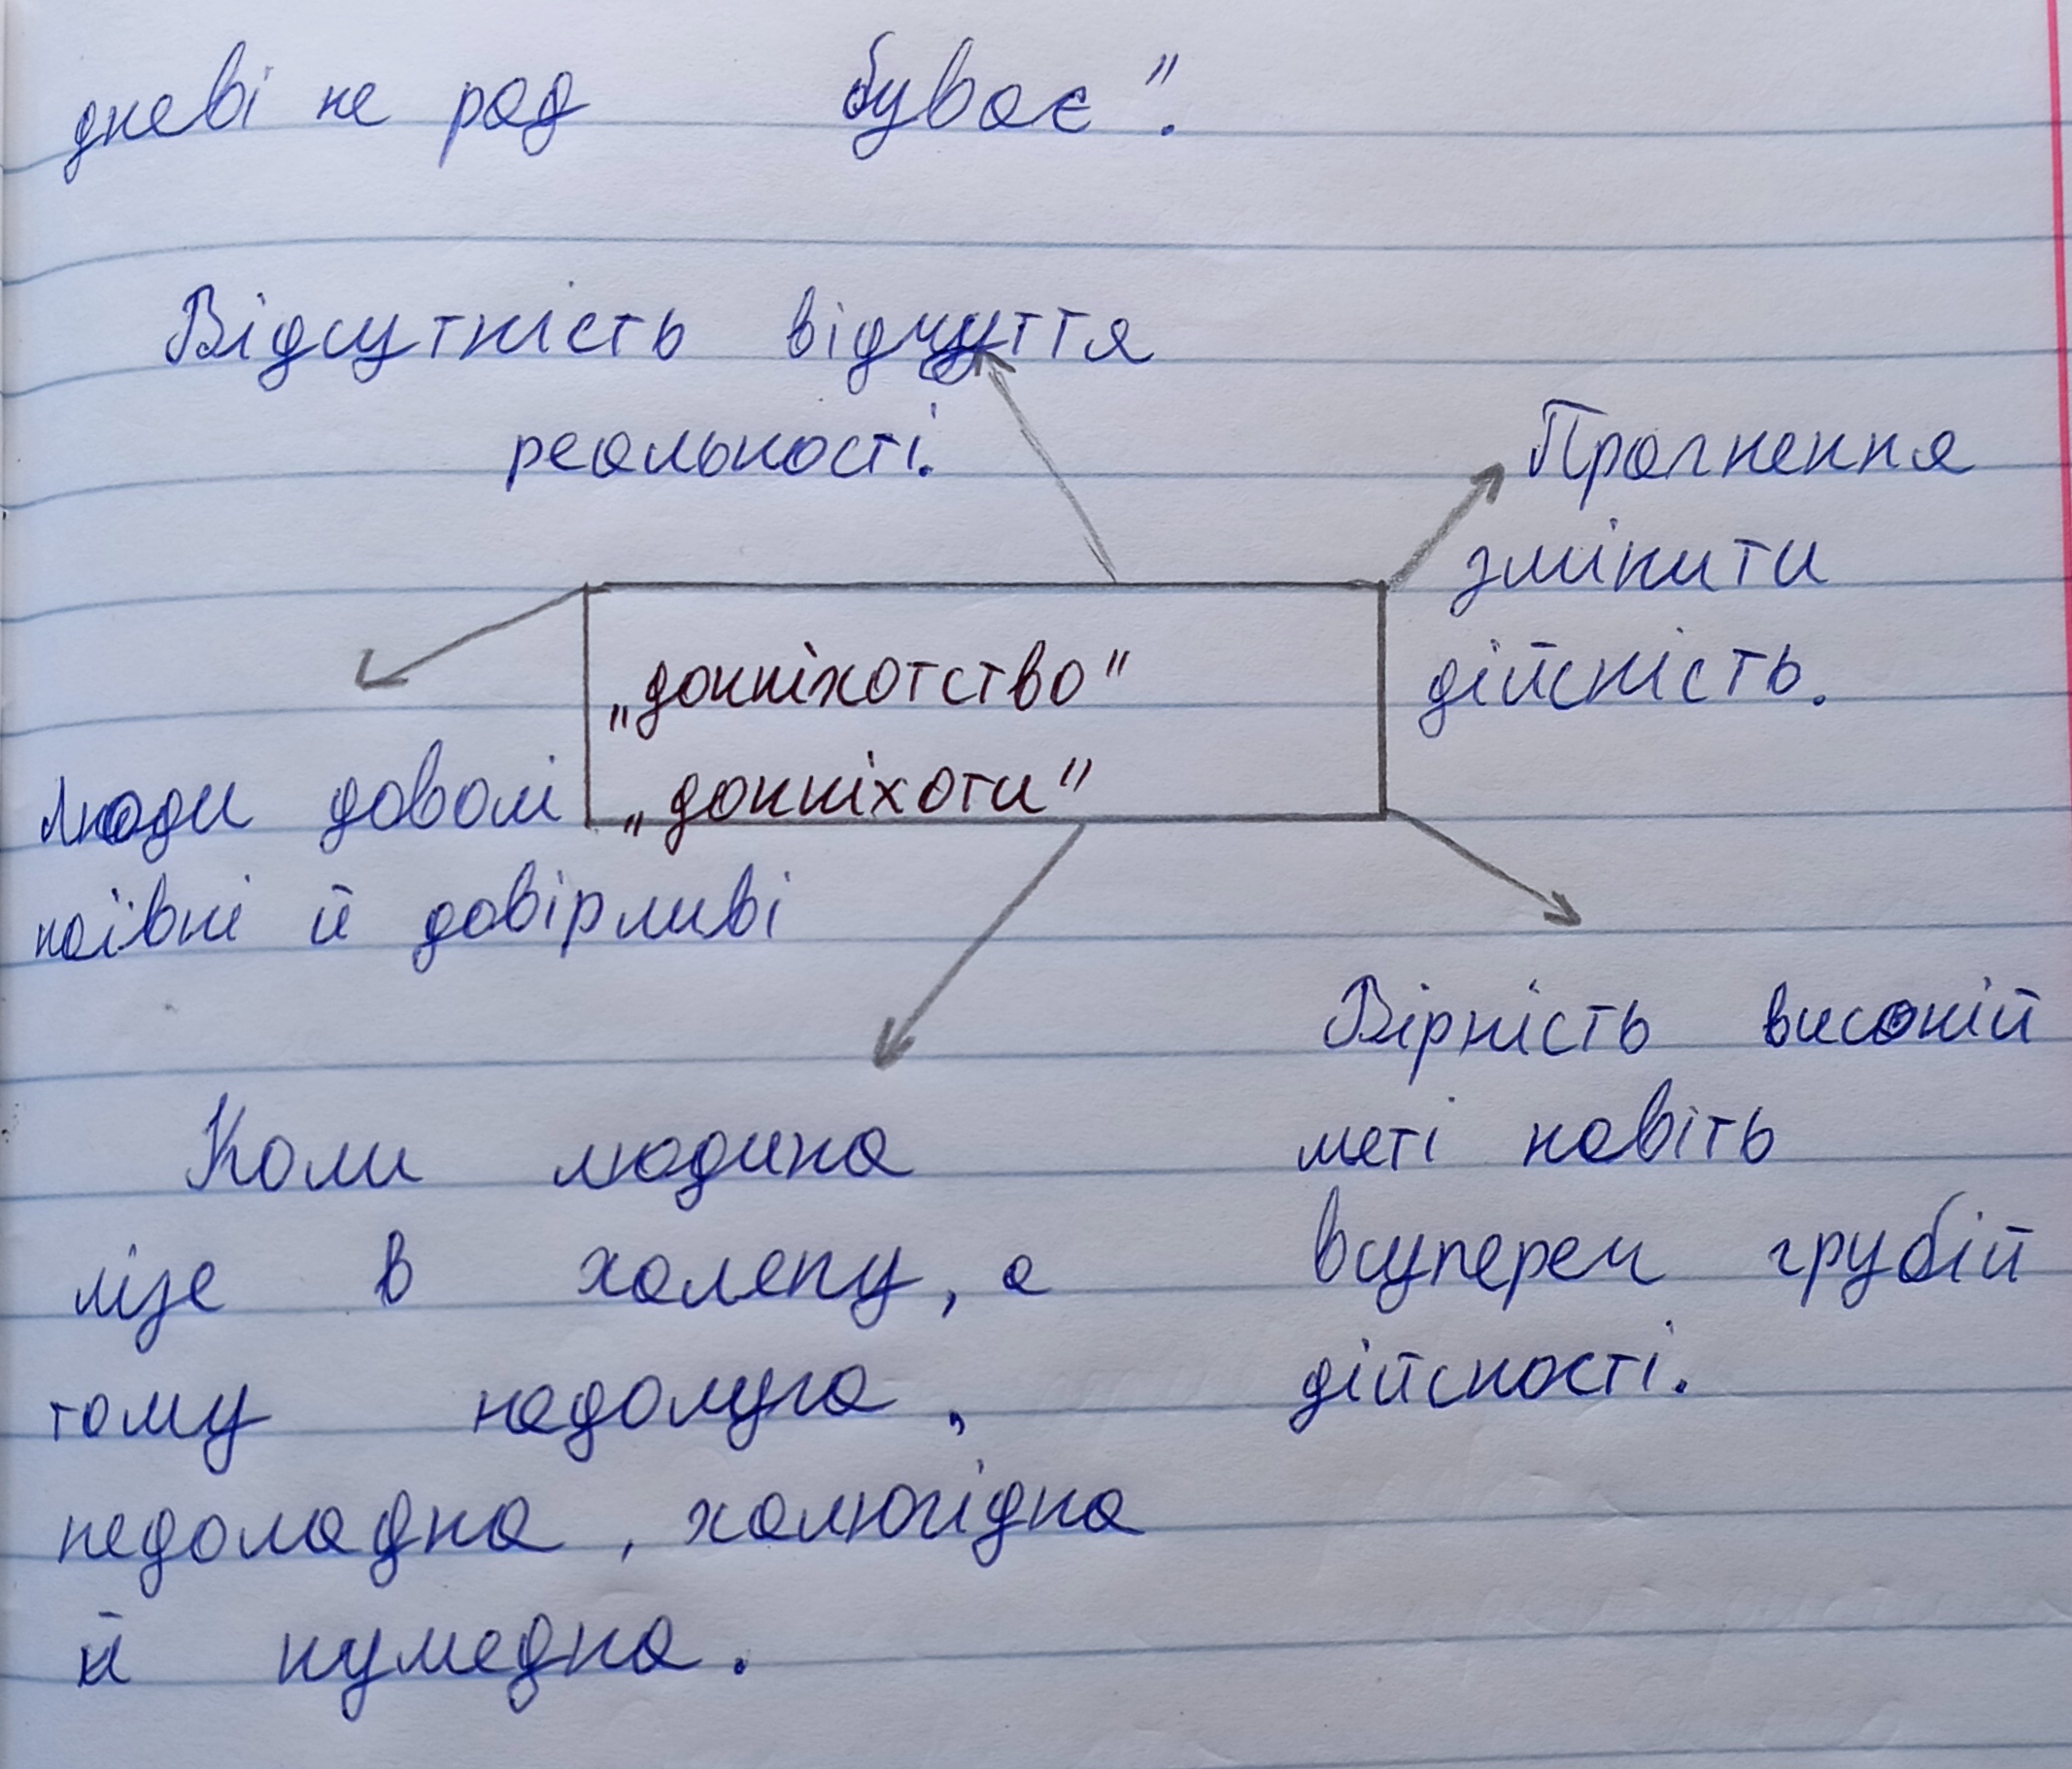 дневі не рад буває".
Відсутність відчуття
реальності.
Прагнення
змінити
дійсність.
„донкіхотство"
„донкіхоти"
люди доволі
наївні й довірливі
Вірність високій
меті навіть
всупереч грубій
дійсності.
Коли людина
лізе в халепу, а
тому недолуга,
недоладна, халюгідна
й кумедна.